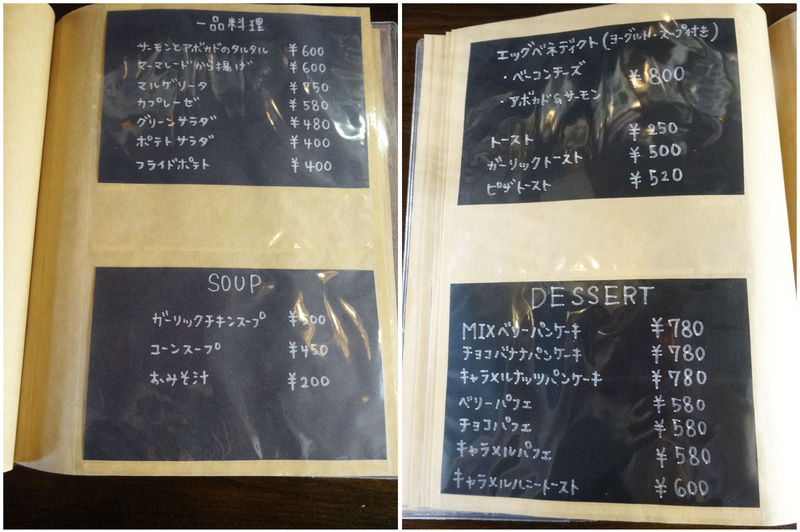 一品料理
サーモンとアボカドのタルタル ¥600
マーマレードから揚げ ¥600
マルゲリータ ¥750
カプレーゼ ¥580
グリーンサラダ ¥480
ポテトサラダ ¥400
フライドポテト ¥400
SOUP
ガーリックチキンスープ ¥500
コーンスープ ¥450
おみそ汁 ¥200
エッグベネディクト(ヨーグルト・スープ付き)
・ベーコンチーズ ¥800
・アボカド&サーモン
トースト ¥250
ガーリックトースト ¥500
ピザトースト ¥520
DESSERT
MIXベリーパンケーキ ¥780
チョコバナナパンケーキ ¥780
キャラメルナッツパンケーキ ¥780
ベリーパフェ ¥580
チョコパフェ ¥580
キャラメルパフェ ¥580
キャラメルハニートースト ¥600